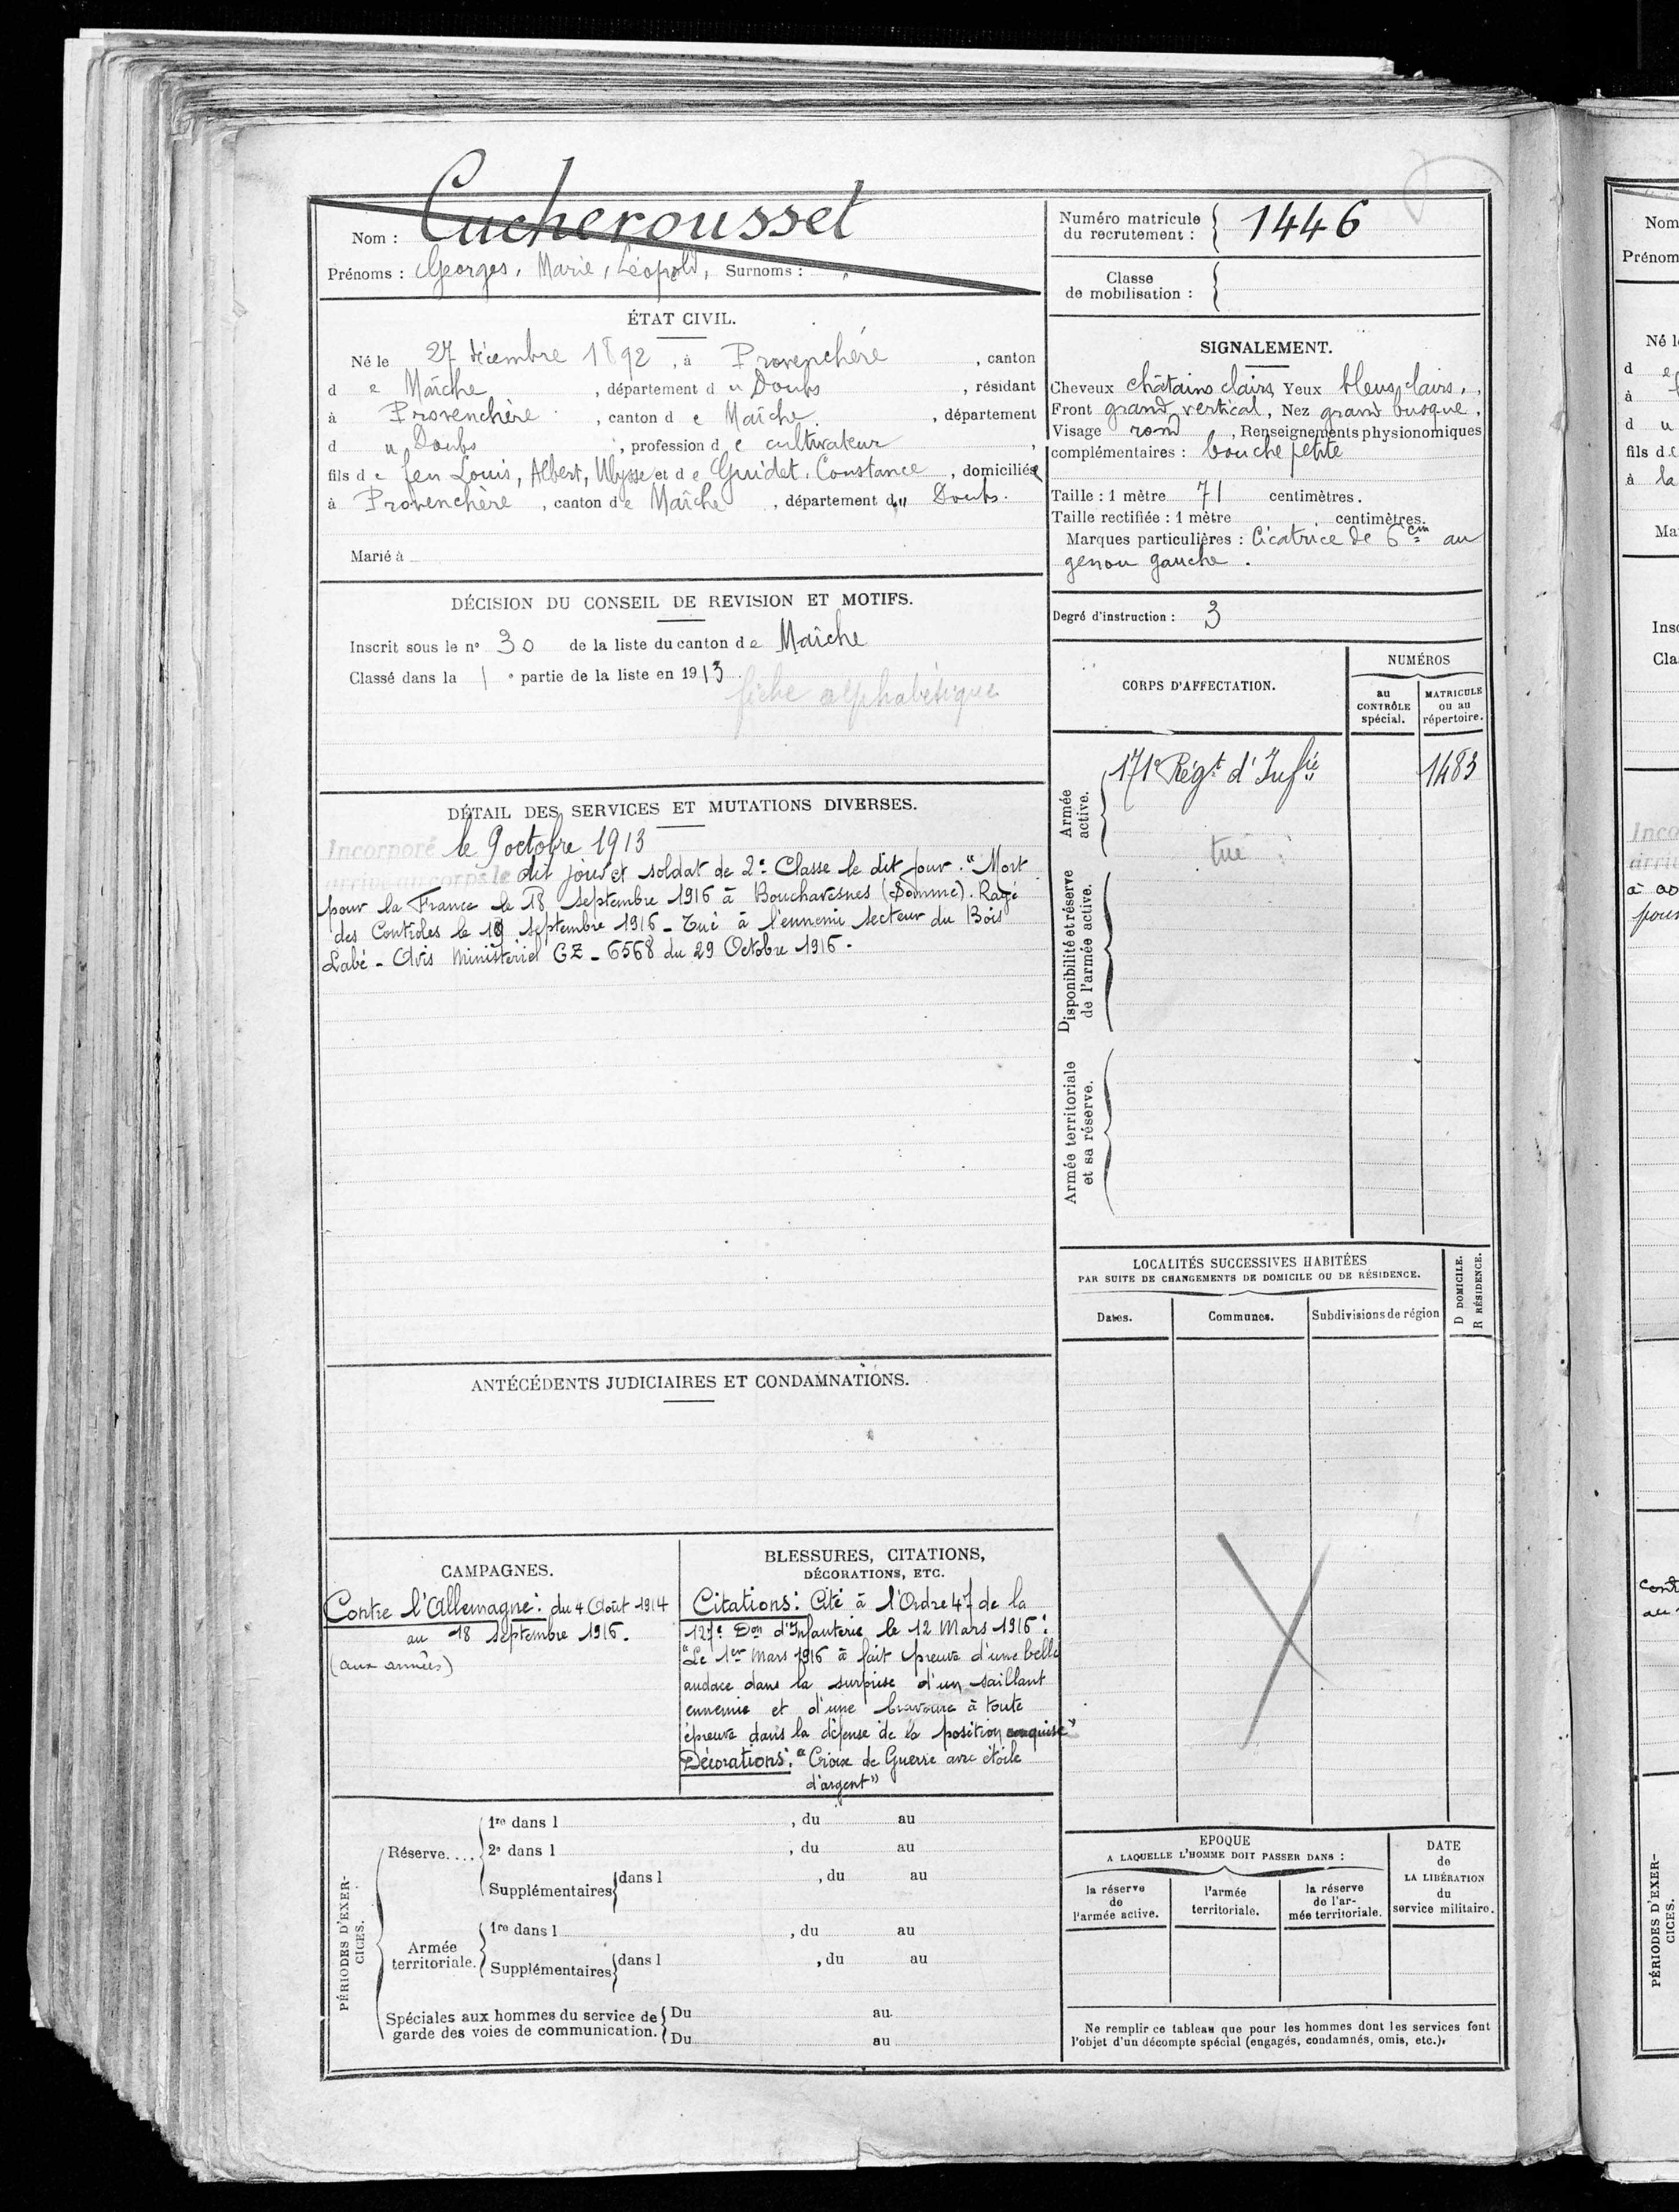 Nom : Cucherousset
Prénoms : Georges, Marie, Léopold, Surnoms :
ÉTAT CIVIL.
Né le 27 décembre 1892, à Provenchère, canton
de Maîche, département du Doubs, résidant
à Provenchère, canton de Maîche, département
du Doubs, profession de cultivateur,
fils de feu Louis, Albert, Ulysse et de Guidet, Constance, domiciliée
à Provenchère, canton de Maîche, département du Doubs.
Marié à
DÉCISION DU CONSEIL DE REVISION ET MOTIFS.
Inscrit sous le n° 30 de la liste du canton de Maîche
Classé dans la 1e partie de la liste en 1913.
fiche alphabétique
DÉTAIL DES SERVICES ET MUTATIONS DIVERSES.
Incorporé le 9 octobre 1913
arrivé au corps le dit jour et soldat de 2e Classe le dit jour. "Mort
pour la France le 18 septembre 1916 à Bouchavesnes (Somme). Rayé
des Contrôles le 19 septembre 1916 - Tué à l'ennemi secteur du Bois
Labé - Avis Ministériel GZ - 6568 du 29 Octobre 1916 -
ANTÉCÉDENTS JUDICIAIRES ET CONDAMNATIONS.
CAMPAGNES.
Contre l'Allemagne : du 4 Août 1914
au 18 septembre 1916.
(aux armées)
BLESSURES, CITATIONS,
DÉCORATIONS, ETC.
Citations : Cité à l'Ordre 47 de la
127e Don d'Infanterie le 12 Mars 1916 :
"Le 1er Mars 1916 à fait preuve d'une belle
audace dans la surprise d'un saillant
ennemie et d'une bravoure à toute
épreuve dans la défense de la position conquise"
Décorations : "Croix de Guerre avec étoile
d'argent"
PÉRIODES D'EXERCICES.
Réserve....
1re dans l , du au
2e dans l , du au
Supplémentaires dans l , du au
Armée territoriale.
1re dans l , du au
Supplémentaires dans l , du au
Spéciales aux hommes du service de Du au
garde des voies de communication. Du au
Numéro matricule
du recrutement : 1446
Classe
de mobilisation :
SIGNALEMENT.
Cheveux châtains clairs Yeux bleus clairs,
Front grand vertical, Nez grand busqué,
Visage rond, Renseignements physionomiques
complémentaires : bouche petite
Taille : 1 mètre 71 centimètres.
Taille rectifiée : 1 mètre centimètres.
Marques particulières : Cicatrice de 6 cm au
genou gauche.
Degré d'instruction : 3
CORPS D'AFFECTATION.
NUMÉROS
au
CONTRÔLE
spécial.
MATRICULE
ou au
répertoire.
Armée
active.
171e Régt d'Infrie 1483
tué
Disponibilité et réserve
de l'armée active.
Armée territoriale
et sa réserve.
LOCALITÉS SUCCESSIVES HABITÉES
PAR SUITE DE CHANGEMENTS DE DOMICILE OU DE RÉSIDENCE.
D DOMICILE.
R RÉSIDENCE.
Dates. Communes. Subdivisions de région
EPOQUE
A LAQUELLE L'HOMME DOIT PASSER DANS :
la réserve
de
l'armée active.
l'armée
territoriale.
la réserve
de l'ar-
mée territoriale.
DATE
de
LA LIBÉRATION
du
service militaire.
Ne remplir ce tableau que pour les hommes dont les services font
l'objet d'un décompte spécial (engagés, condamnés, omis, etc.).
Nom
Prénom
Né l
d
à
d u
fils de
à la
Ma
Insc
Cla
Inco
arriv
PÉRIODES D'EXER-
CICES.